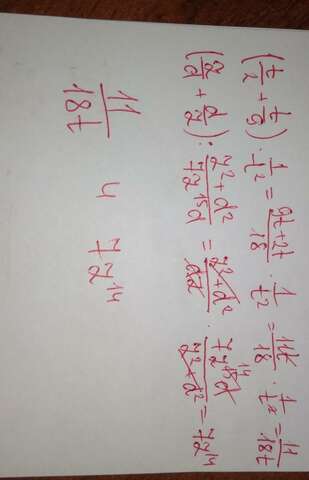 (t/2 + t/9) · 1/t² = 9t+2t/18 · 1/t² = 11t/18 · 1/t² = 11/18t
(z/d + d/z) : z²+d²/7z¹⁵d = z²+d²/dz · 7z¹⁵d/z²+d² 14 = 7z¹⁴
11/18t и 7z¹⁴